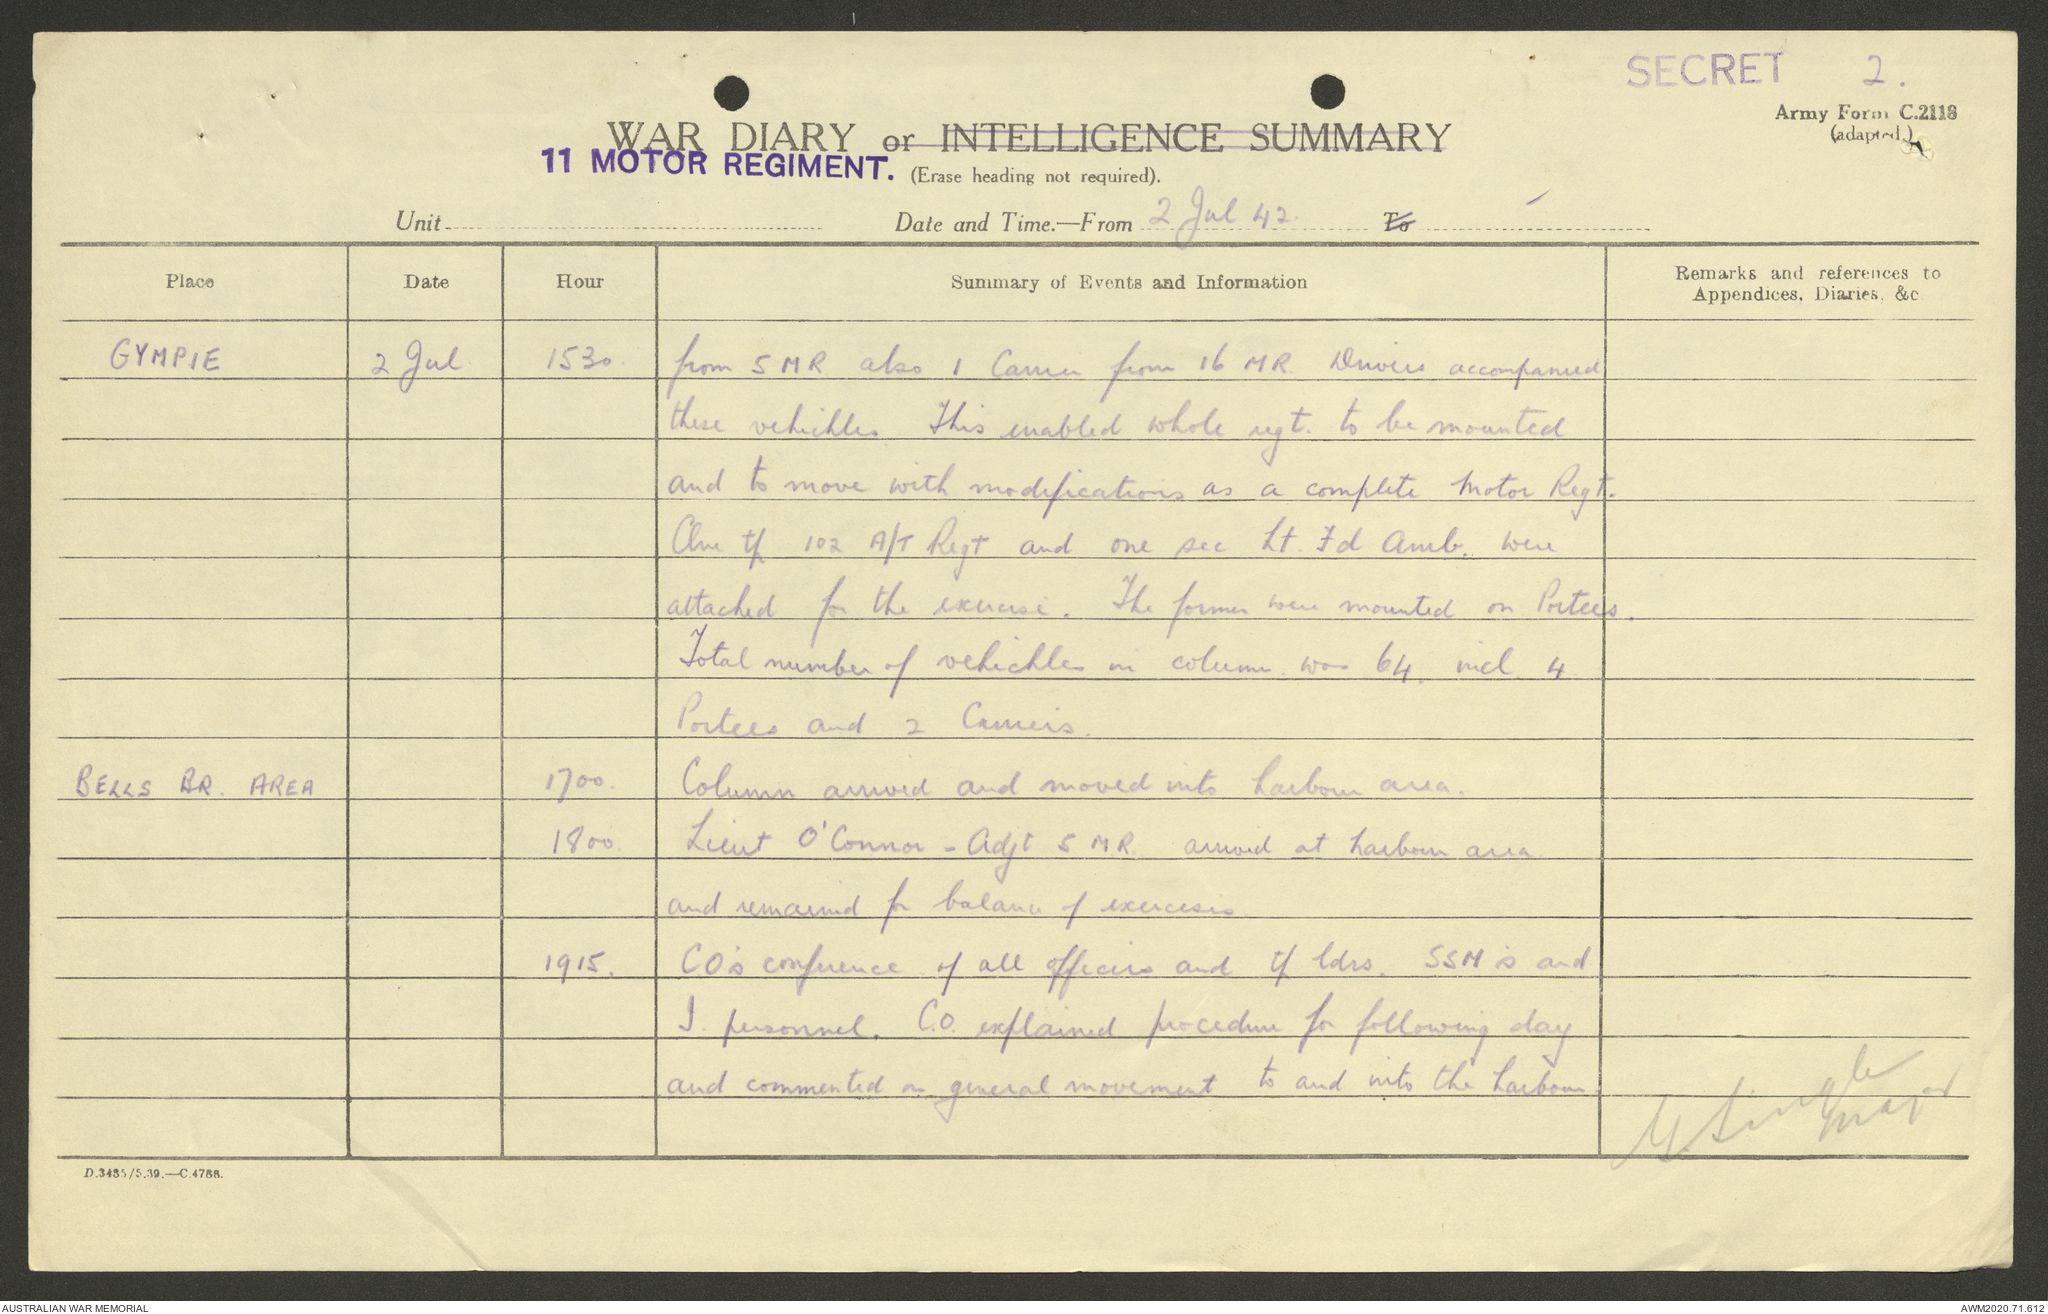 SECRET 2.
Army Form C.2118
(adapted.)
WAR DIARY or INTELLIGENCE SUMMARY
11 MOTOR REGIMENT. (Erase heading not required).
Unit Date and Time.—From 2 Jul 42. To
Place Date Hour Summary of Events and Information Remarks and references to
Appendices, Diaries, &c
GYMPIE 2 Jul 1530. from 5 MR also 1 Carrier from 16 MR. Drivers accompanied
these vehichles. This enabled whole regt. to be mounted
and to move with modifications as a complete Motor Regt.
One tp 102 A/T Regt and one sec Lt. Fd Amb. were
attached for the exercise. The former were mounted on Portees.
Total number of vehichles in column was 64 incl. 4
Portees and 2 Carriers.
BELLS BR. AREA 1700. Column arrived and moved into harbour area.
1800. Lieut O'Connor - Adjt 5 MR arrived at harbour area
and remained for balance of exercises.
1915. CO's conference of all officers and tp ldrs. SSM's and
I. personnel. C.O. explained procedure for following day
and commented on general movement to and into the harbour
Major
D.3485/5.39.—C.4788.
AUSTRALIAN WAR MEMORIAL AWM2020.71.612